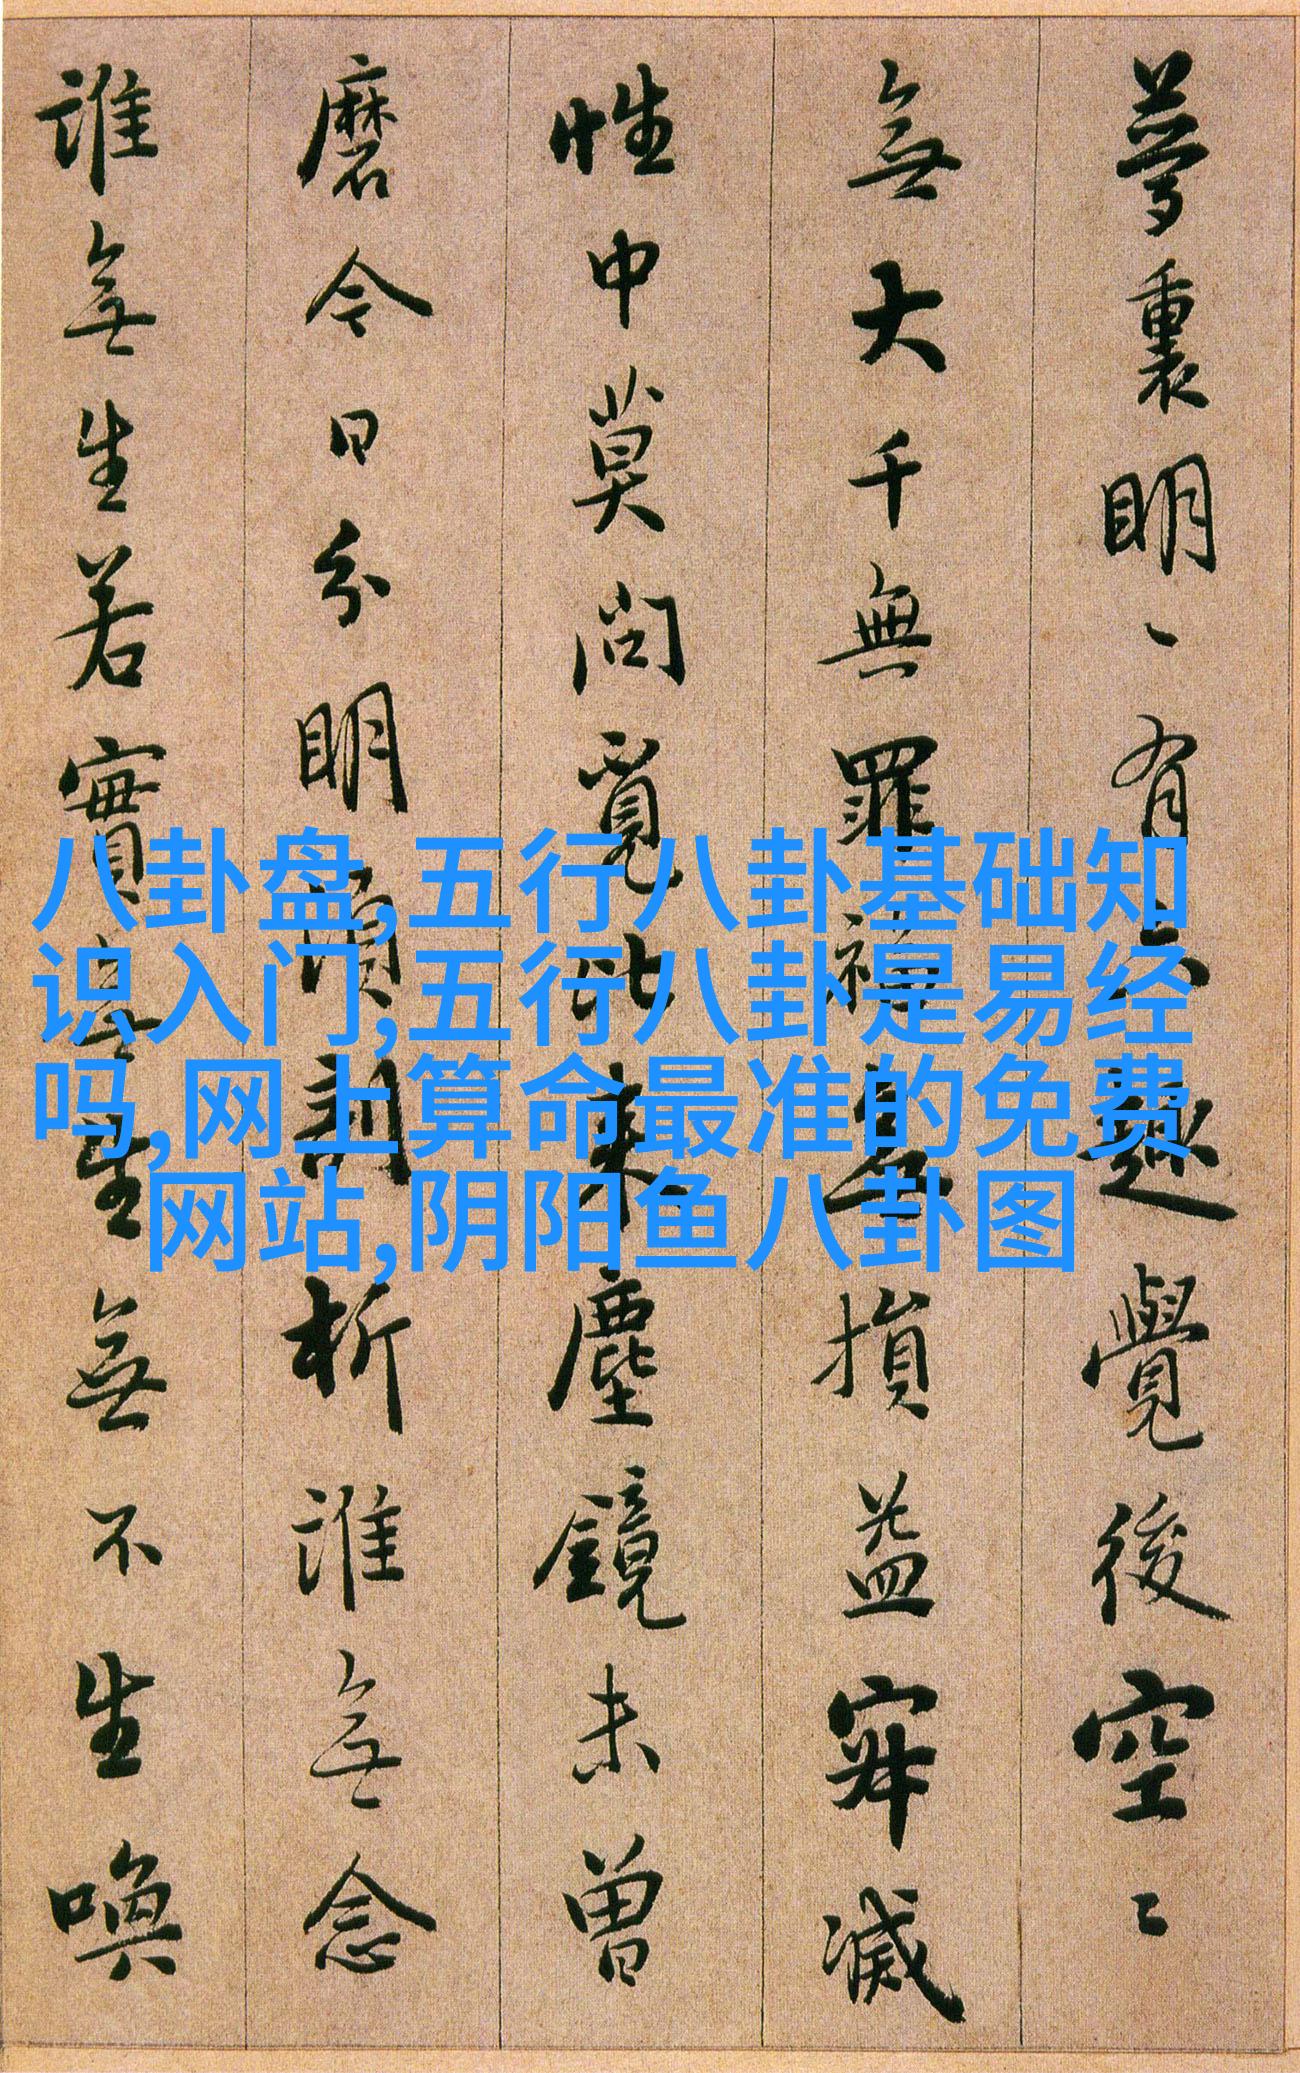 夢裏明〻有六趣覺後空〻
無大千無罪福無損益寂滅
性中莫問覓比來塵鏡未曾
磨今日分明須剖析誰無念
誰無生若實無生無不生喚
八卦盘,五行八卦基础知
识入门,五行八卦是易经
吗,网上算命最准的免费
网站,阴阳鱼八卦图